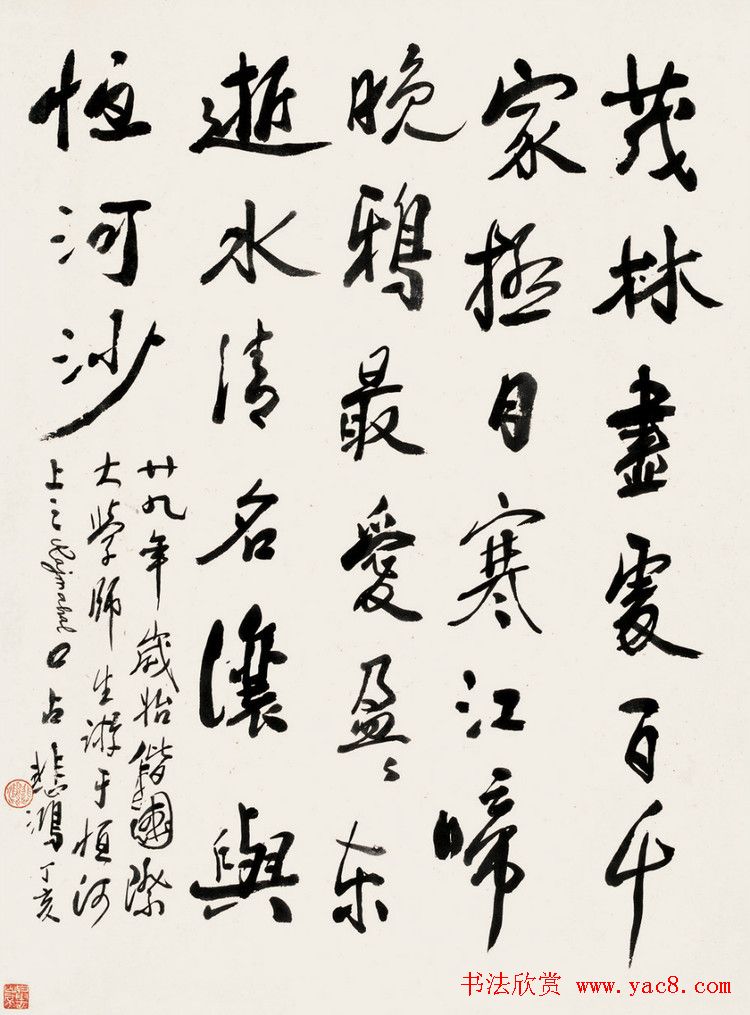 茂林盡處百千
家極目寒江啼
晚鴉最愛盈〻東
逝水清名讓與
恆河沙
廿九年歲始偕國際
大學師生游于恒河
上之Rajmahal口占 悲鴻 丁亥
书法欣赏 www.yac8.com